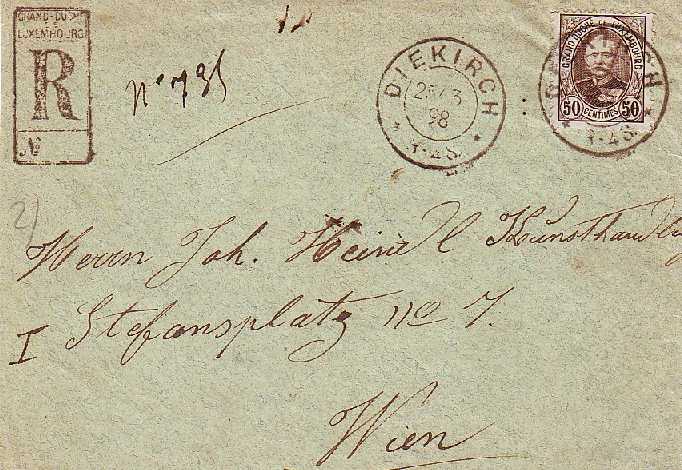 GRAND-DUCHÉ
LUXEMBOURG
R
№
No 735
DIEKIRCH
98
GRAND DUCHÉ DE LUXEMBOURG
50 CENTIMES 50
2)
Herrn Joh. Heindl Kunsthandlg
I Stefansplatz no 7.
Wien